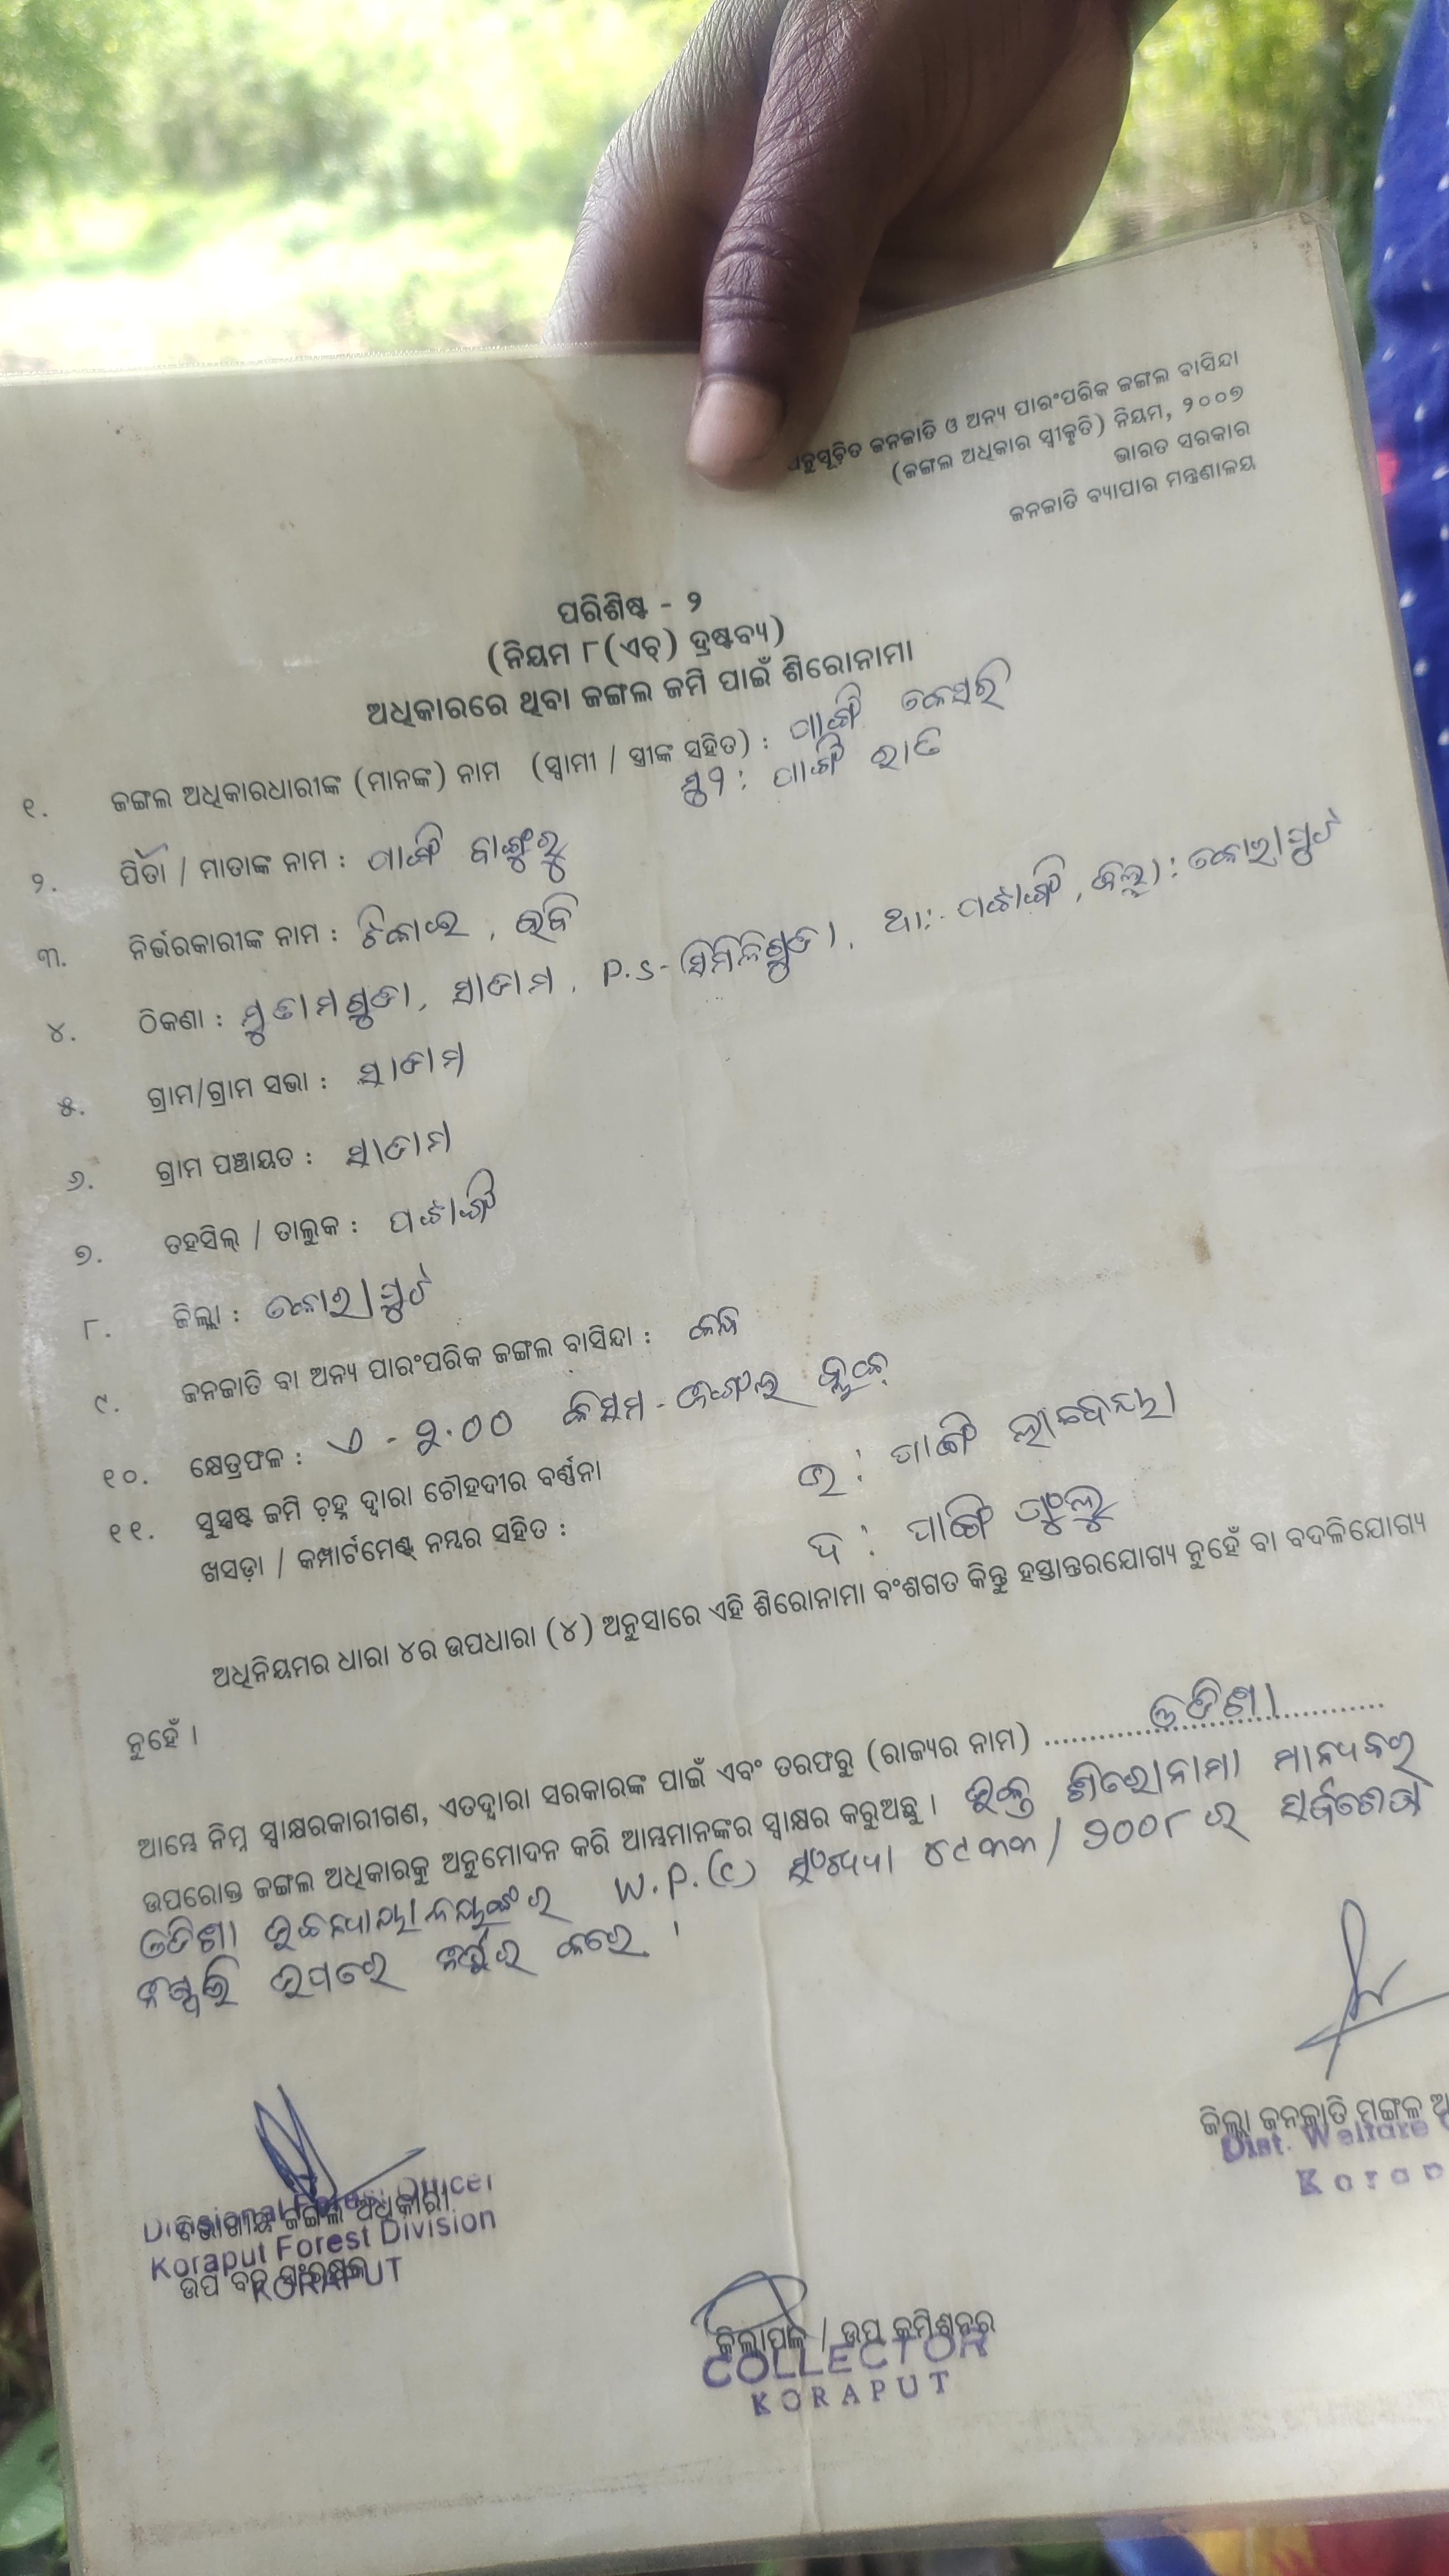 ଅନୁସୂଚିତ ଜନଜାତି ଓ ଅନ୍ୟ ପାରଂପରିକ ଜଙ୍ଗଲ ବାସିନ୍ଦା
(ଜଙ୍ଗଲ ଅଧିକାର ସ୍ୱୀକୃତି) ନିୟମ, ୨୦୦୭
ଭାରତ ସରକାର
ଜନଜାତି ବ୍ୟାପାର ମନ୍ତ୍ରଣାଳୟ
ପରିଶିଷ୍ଟ - ୨
(ନିୟମ ୮(ଏଚ୍) ଦ୍ରଷ୍ଟବ୍ୟ)
ଅଧିକାରରେ ଥିବା ଜଙ୍ଗଲ ଜମି ପାଇଁ ଶିରୋନାମା
୧. ଜଙ୍ଗଲ ଅଧିକାରଧାରୀଙ୍କ (ମାନଙ୍କ) ନାମ (ସ୍ୱାମୀ / ସ୍ତ୍ରୀଙ୍କ ସହିତ) : ପାଙ୍ଗି କେସରି
ପାଙ୍ଗି
୨. ପିତା / ମାତାଙ୍କ ନାମ : ପାଙ୍ଗି
୩. ନିର୍ଭରକାରୀଙ୍କ ନାମ : ଟିକାଇ, ରବି
୪. ଠିକଣା : ସାତାମ, P.S- ସିମିଳିଗୁଡା, ଥା:- ପଟାଙ୍ଗି, ଜିଲ୍ଲା : କୋରାପୁଟ
୫. ଗ୍ରାମ/ଗ୍ରାମ ସଭା : ସାତାମ
୬. ଗ୍ରାମ ପଞ୍ଚାୟତ : ସାତାମ
୭. ତହସିଲ୍ / ତାଲୁକ : ପଟାଙ୍ଗି
୮. ଜିଲ୍ଲା : କୋରାପୁଟ
୯. ଜନଜାତି ବା ଅନ୍ୟ ପାରଂପରିକ ଜଙ୍ଗଲ ବାସିନ୍ଦା : କନ୍ଧ
୧୦. କ୍ଷେତ୍ରଫଳ : ଏ - ୨.୦୦ କିସମ - ଜଙ୍ଗଲ
୧୧. ସୁସ୍ପଷ୍ଟ ଜମି ଚିହ୍ନ ଦ୍ୱାରା ଚୌହଦୀର ବର୍ଣ୍ଣନା ଉ : ପାଙ୍ଗି
ଖସଡ଼ା / କମ୍ପାର୍ଟମେଣ୍ଟ୍ ନମ୍ବର ସହିତ : ଦ : ପାଙ୍ଗି
ଅଧିନିୟମର ଧାରା ୪ର ଉପଧାରା (୪) ଅନୁସାରେ ଏହି ଶିରୋନାମା ବଂଶଗତ କିନ୍ତୁ ହସ୍ତାନ୍ତରଯୋଗ୍ୟ ନୁହେଁ ବା ବଦଳିଯୋଗ୍ୟ
ନୁହେଁ ।
ଆମ୍ଭେ ନିମ୍ନ ସ୍ୱାକ୍ଷରକାରୀଗଣ, ଏତଦ୍ୱାରା ସରକାରଙ୍କ ପାଇଁ ଏବଂ ତରଫରୁ (ରାଜ୍ୟର ନାମ) ଓଡିଶା
ଉପରୋକ୍ତ ଜଙ୍ଗଲ ଅଧିକାରକୁ ଅନୁମୋଦନ କରି ଆମ୍ଭମାନଙ୍କର ସ୍ୱାକ୍ଷର କରୁଅଛୁ । ଉକ୍ତ ଶିରୋନାମା ମାନ୍ୟବର
ଓଡିଶା ଉଚ୍ଚନ୍ୟାୟାଳୟଙ୍କ ର W.P.(C) ସଂଖ୍ୟା ୪୯୩୩/୨୦୦୮ ର ସର୍ବଶେଷ
ନିଷ୍ପତ୍ତି ଉପରେ ନିର୍ଭର କରେ ।
ବିଭାଗୀୟ ଜଙ୍ଗଲ ଅଧିକାରୀ
ଉପ ବନ ସଂରକ୍ଷକ
Divisional Forest Officer
Koraput Forest Division
KORAPUT
ଜିଲ୍ଲା ଜନଜାତି ମଙ୍ଗଳ
Dist. Welfare
ଜିଲ୍ଲାପାଳ / ଉପ କମିଶନର
COLLECTOR
KORAPUT